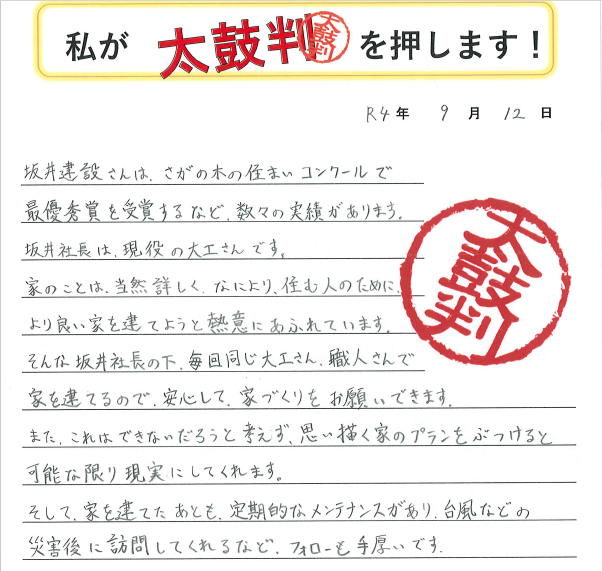 私が 太鼓判 太鼓判 を押します！
R4年 9月 12日
坂井建設さんは、さがの木の住まいコンクールで
最優秀賞を受賞するなど、数々の実績があります。
坂井社長は、現役の大工さんです。
家のことは、当然詳しく、なにより、住む人のために、
より良い家を建てようと熱意にあふれています。
太鼓判
そんな坂井社長の下、毎回同じ大工さん、職人さんで
家を建てるので、安心して、家づくりをお願いできます。
また、これはできないだろうと考えず、思い描く家のプランをぶつけると
可能な限り現実にしてくれます。
そして、家を建てたあとも、定期的なメンテナンスがあり、台風などの
災害後に訪問してくれるなど、フォローも手厚いです。